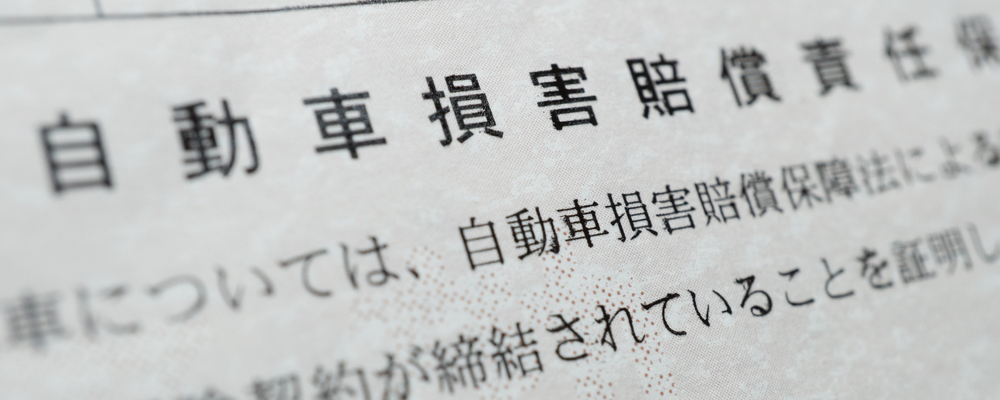 自動車損害賠償責任保
車については、自動車損害賠償保障法による
険契約が締結されていることを証明し